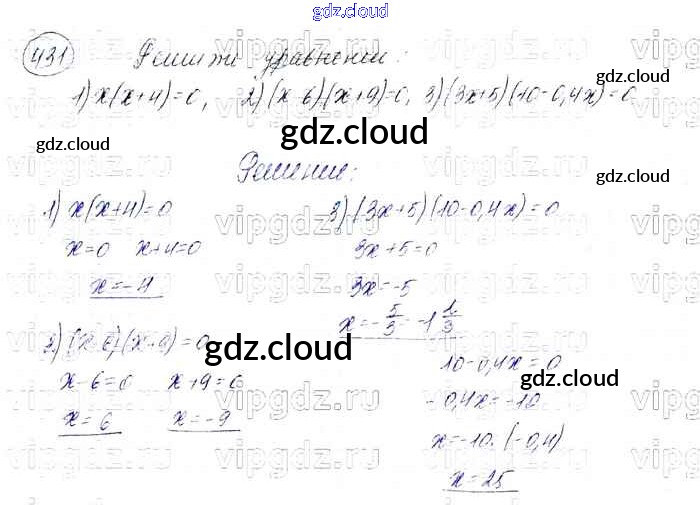 gdz.cloud
431 Решите уравнение:
1) x(x+4)=0, 2) (x-6)(x+9)=0, 3) (3x+5)(10-0,4x)=0
Решение:
1) x(x+4)=0
x=0 x+4=0
x=-4
2) (x-6)(x+9)=0
x-6=0 x+9=0
x=6 x=-9
3) (3x+5)(10-0,4x)=0
3x+5=0
3x=-5
x=-5/3=-1 1/3
10-0,4x=0
-0,4x=-10
x=-10:(-0,4)
x=25
gdz.cloud
gdz.cloud
gdz.cloud
gdz.cloud
gdz.cloud
gdz.cloud
gdz.cloud
gdz.cloud
vipgdz.ru